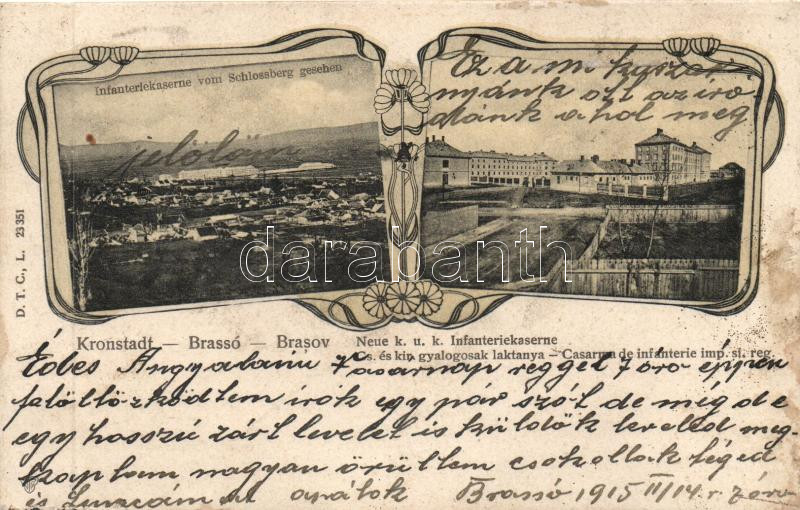 Infanteriekaserne vom Schlossberg gesehen
jelölöm
Ez a mi kaszár
nyánk ott az iro
dánk a hol meg
darabanth
D. T. C., L. 23351
Kronstadt — Brassó — Brasov
Neue k. u. k. Infanteriekaserne
Cs. és kir. gyalogosak laktanya — Casarma de infanterie imp. si. reg.
Édes Angyalaim vasarnap reggel 7 óra éppen
felöltözködtem irok egy pár szót de még de
egy hosszú zárt levelet is küldök leveled meg
kaptam nagyon örültem csokollak téged
is apátok Brassó 1915 II/14. r. 7 óra